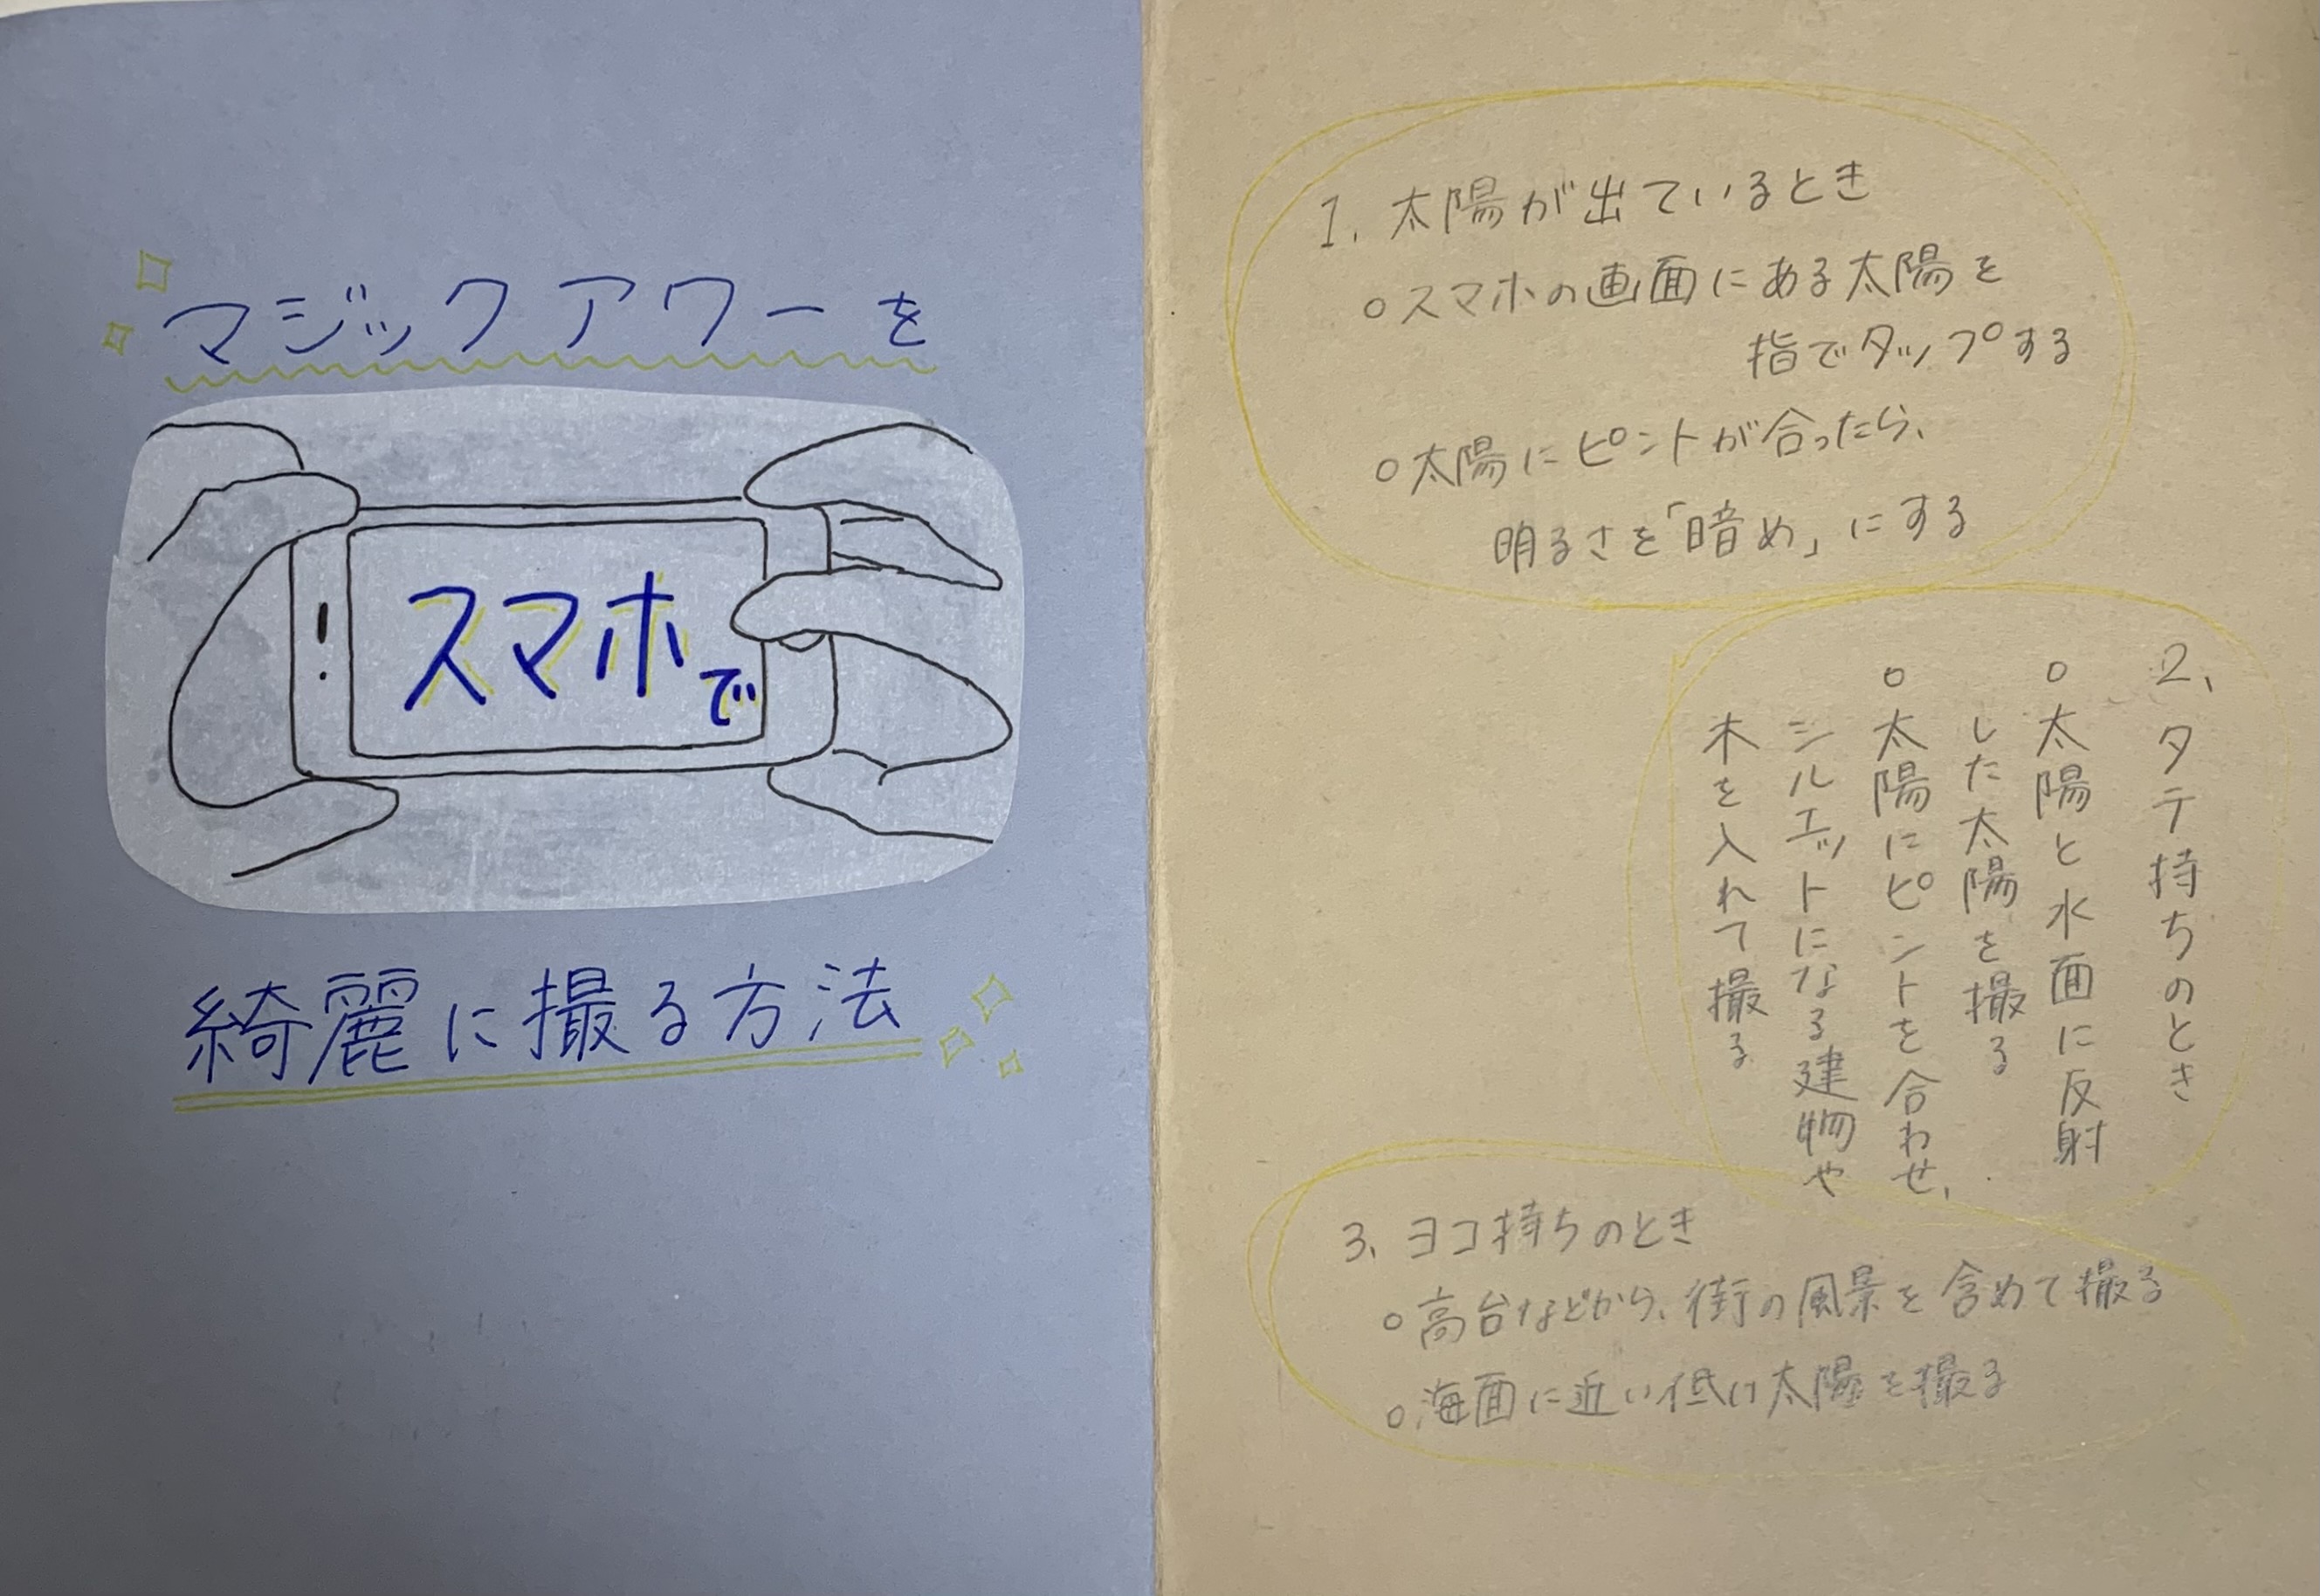 マジックアワーを
スマホで
綺麗に撮る方法
1. 太陽が出ているとき
○スマホの画面にある太陽を
指でタップする
○太陽にピントが合ったら、
明るさを「暗め」にする
2、タテ持ちのとき
○太陽と水面に反射
した太陽を撮る
○太陽にピントを合わせ、
シルエットになる建物や
木を入れて撮る
3、ヨコ持ちのとき
○高台などから、街の風景を含めて撮る
○海面に近い低い太陽を撮る